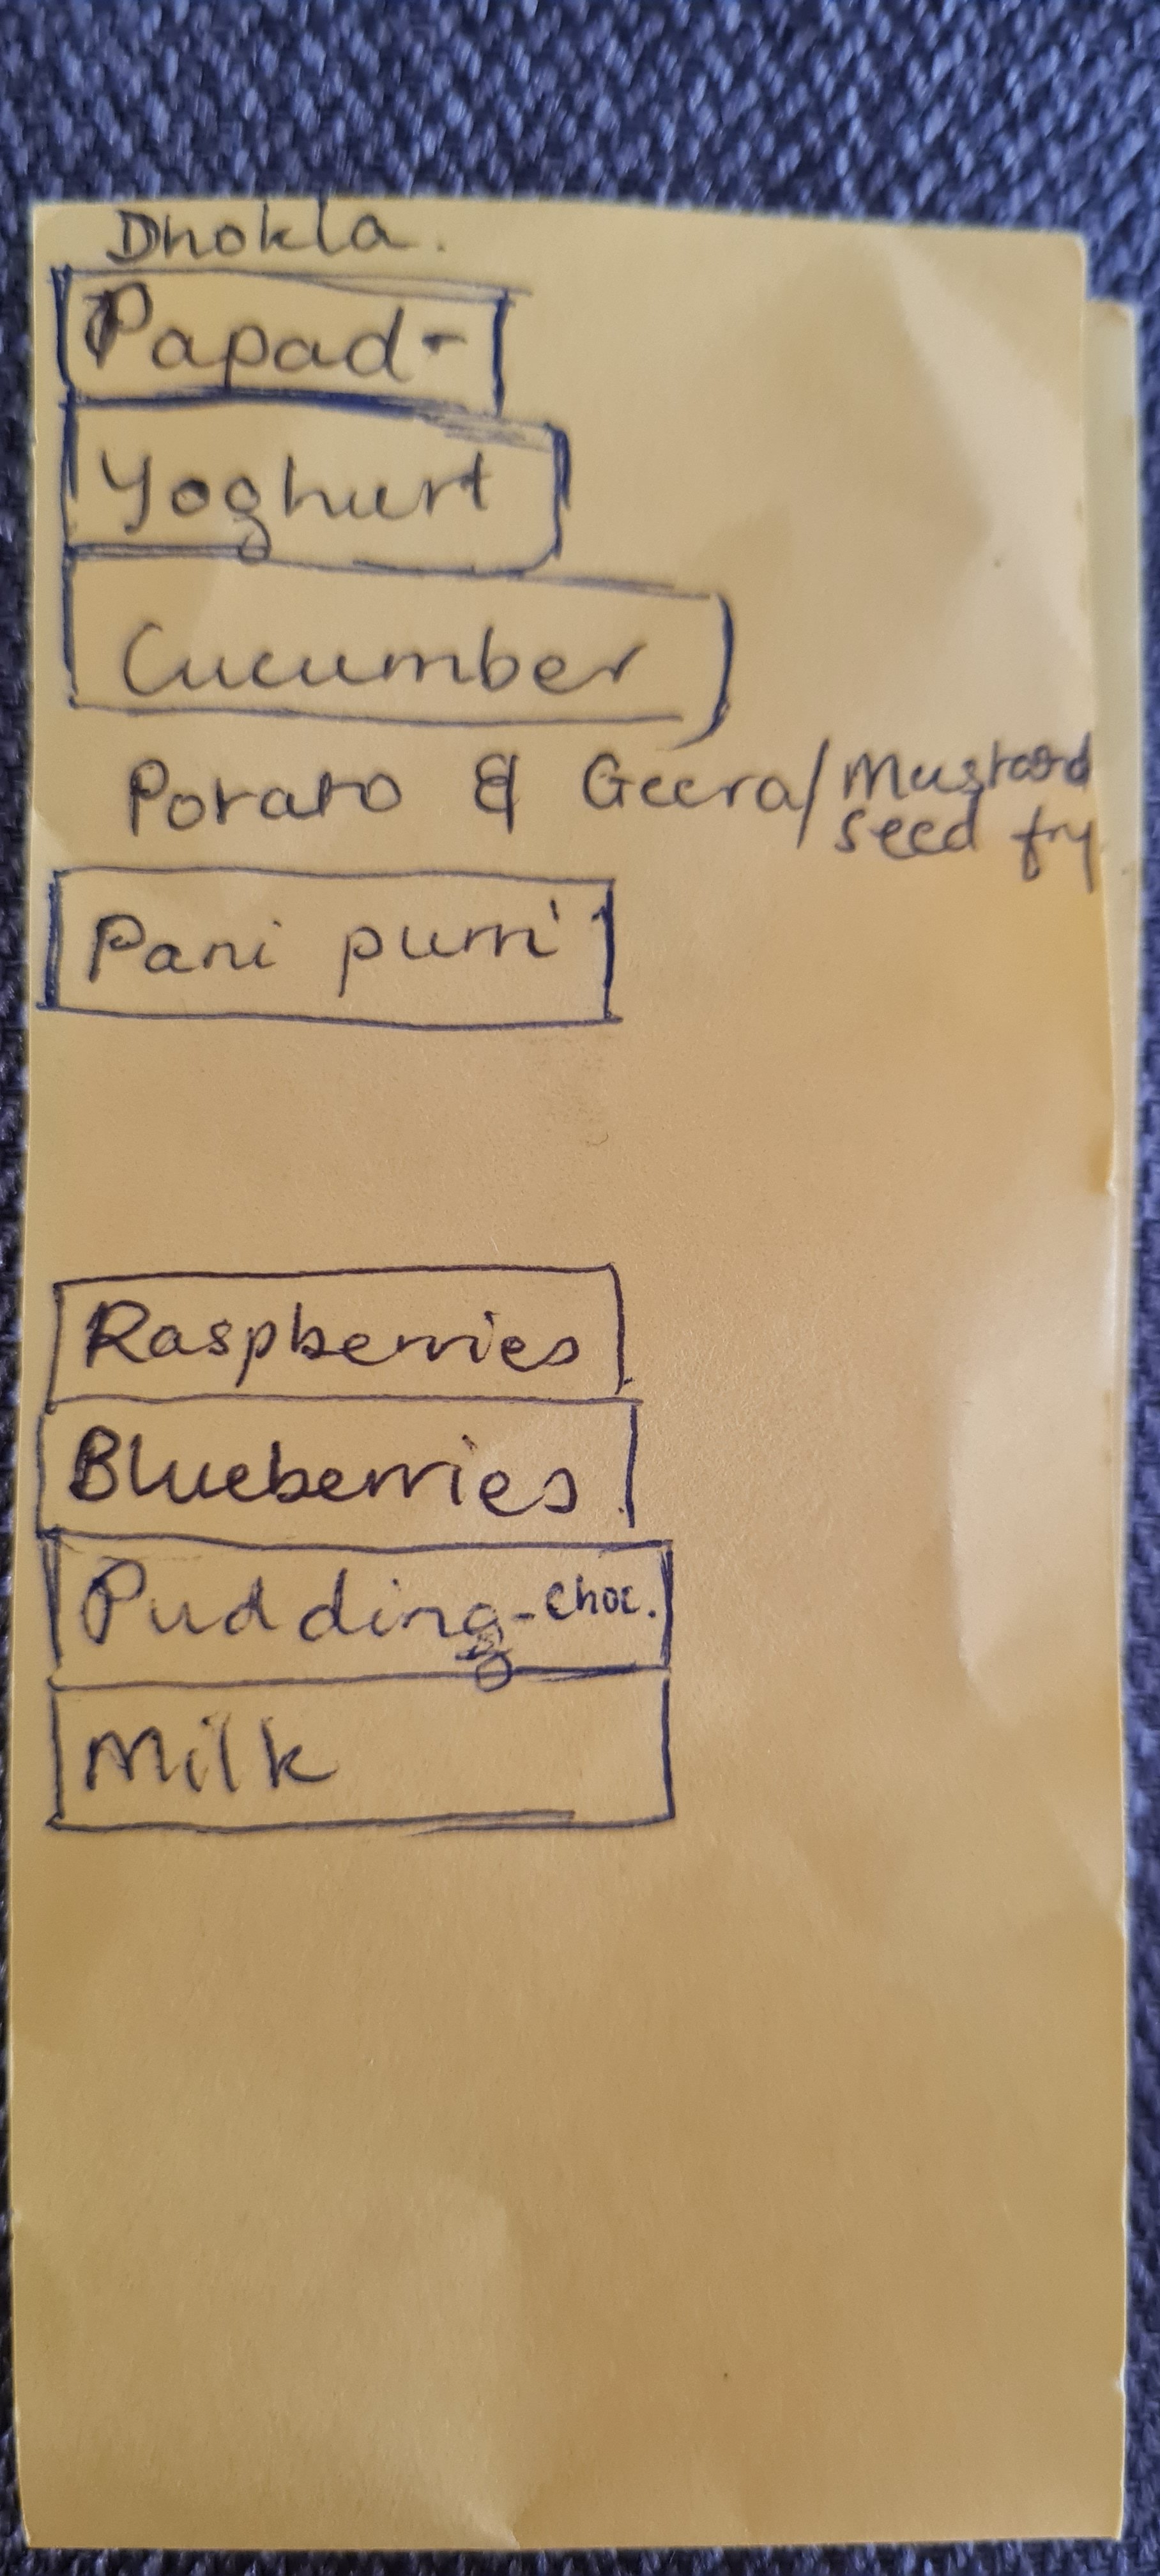 Dhokla.
Papad-
Yoghurt
Cucumber
Potato & Geera/Mustard
seed fry
Pani purri
Raspberries
Blueberries
Pudding-choc.
Milk